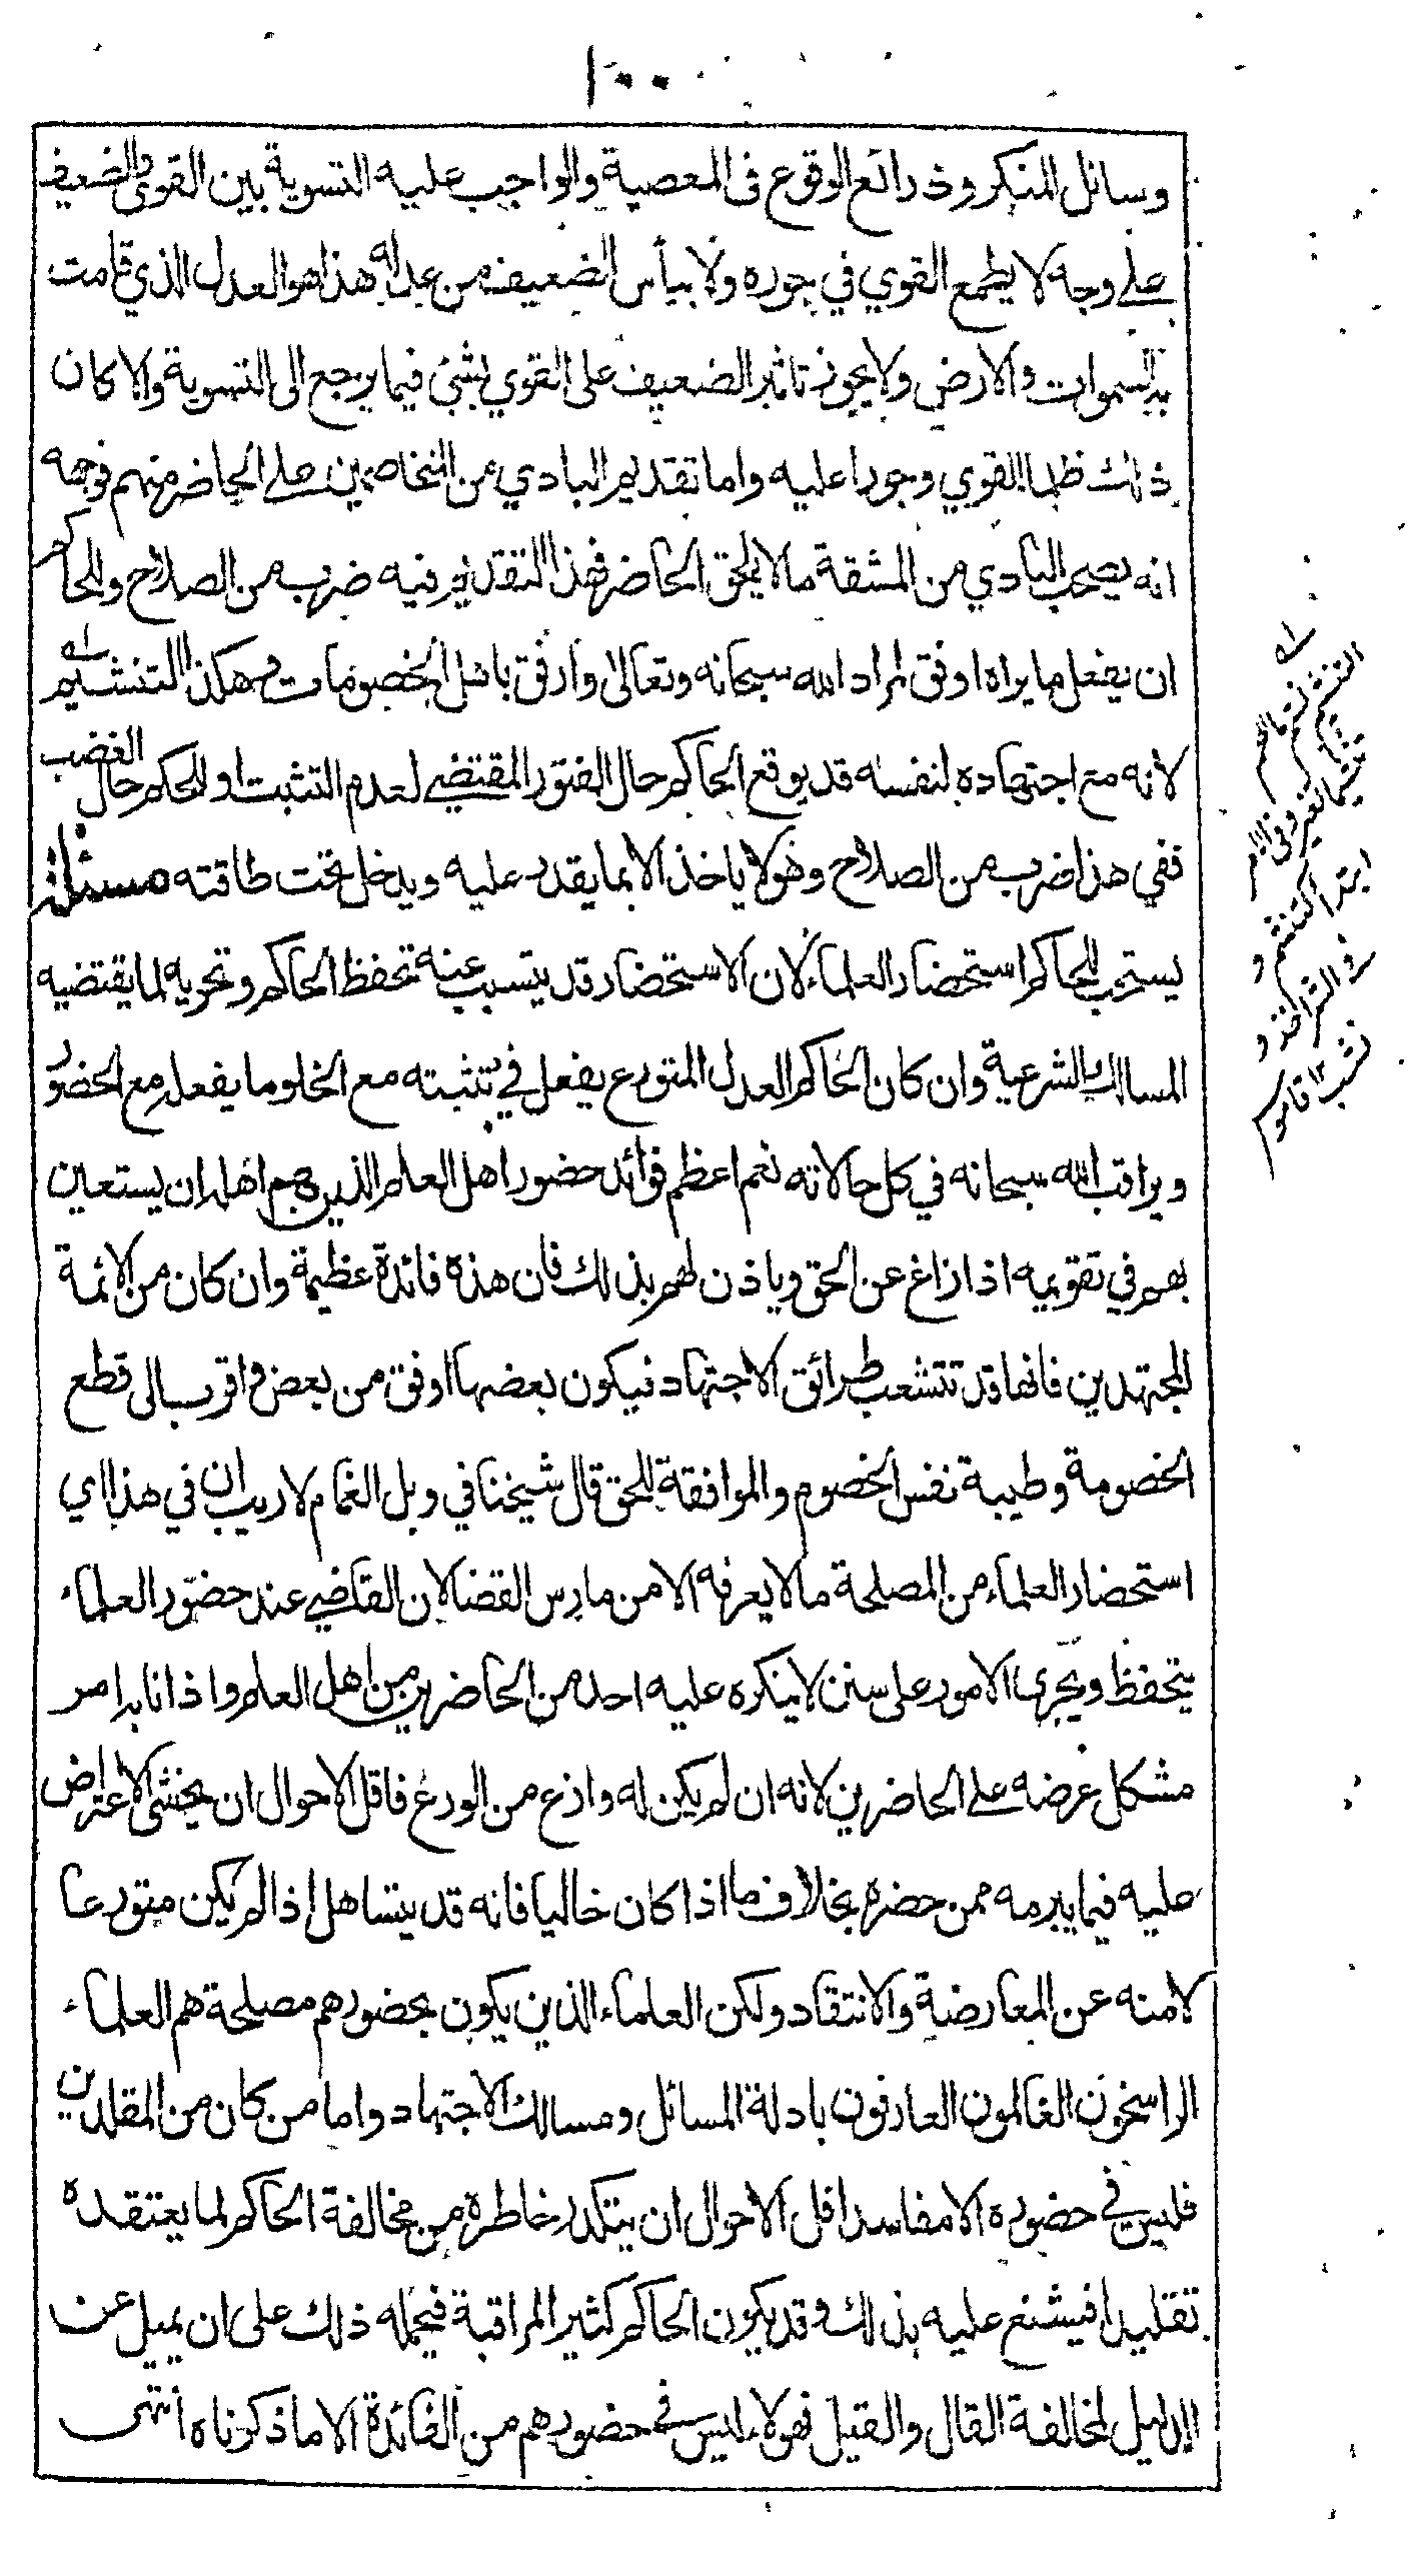 ١٠٠
وسائل المنكر وذرائع الوقوع في المعصية والواجب عليه التسوية بين القوي والضعيف
على وجه لا يطمع القوي في جوره ولا ييأس الضعيف من عدله هذا هو العدل الذي قامت
به السموات والارض ولا يجوز تاثير الضعيف على القوي بشئ فيما يرجع الى التسوية والا كان
ذلك ظلما للقوي وجورا عليه واما تقديم البادي من المتخاصمين على الحاضر منهم فوجهه
انه يصحب البادي من المشقة ما لا يلحق الحاضر فهذا التقديم فيه ضرب من الصلاح وللحاكم
ان يفعل ما يراه اوفق لمراد الله سبحانه وتعالى وارفق باهل الخصومات وهكذا التنشيم
لانه مع اجتهاده لنفسه قد يوقع الحاكم حال الفتور المقتضي لعدم التثبت او للحكم حال الغضب
ففي هذا ضرب من الصلاح وهو لا ياخذ الا بما يقدر عليه ويدخل تحت طاقته مسئلة
يستحب للحاكم استحضار العلماء لان الاستحضار قد يتسبب عنه تحفظ الحاكم وتحريه لما يقتضيه
المسالك الشرعية وان كان الحاكم العدل المتورع يفعل في تثبته مع الخلو ما يفعله مع الحضور
ويراقب الله سبحانه في كل حالاته نعم اعظم فوائد حضور اهل العلم الذين هم اهله ان يستعين
بهم في تقويمه اذا زاغ عن الحق وياذن لهم بذلك فان هذه فائدة عظيمة وان كان من الائمة
المجتهدين فانها قد تتشعب طرائق الاجتهاد فيكون بعضها اوفق من بعض واقرب الى قطع
الخصومة وطيبة نفس الخصوم والموافقة للحق قال شيخنا في وبل الغمام لا ريب ان في هذا اي
استحضار العلماء من المصلحة ما لا يعرفه الا من مارس القضا لان القاضي عند حضور العلماء
يتحفظ ويجري الامور على سنن لا ينكره عليه احد من الحاضرين من اهل العلم واذا نابه امر
مشكل عرضه على الحاضرين لانه ان لم يكن له وازع من الورع فاقل الاحوال ان يخشى الاعتراض
عليه فيما يبرمه ممن حضره بخلاف ما اذا كان خاليا فانه قد يتساهل اذا لم يكن متورعا
لامنه عن المعارضة والانتقاد ولكن العلماء الذين يكون بحضورهم مصلحة هم العلماء
الراسخون العالمون العارفون بادلة المسائل ومسالك الاجتهاد واما من كان من المقلدين
فليس في حضوره الا مفاسد اقل الاحوال ان يتكدر خاطره من مخالفة الحاكم لما يعتقده
تقليدا فيشنع عليه بذلك وقد يكون الحاكم كثير المراقبة فيحمله ذلك على ان يميل عن
الدليل لمخالفة القال والقيل فهولاء ليس في حضورهم من الفائدة الا ما ذكرناه انتهى
له
التنشيم
تغير وفي الامر
ابتدا كتنشم و
نشب ١٢ قاموس